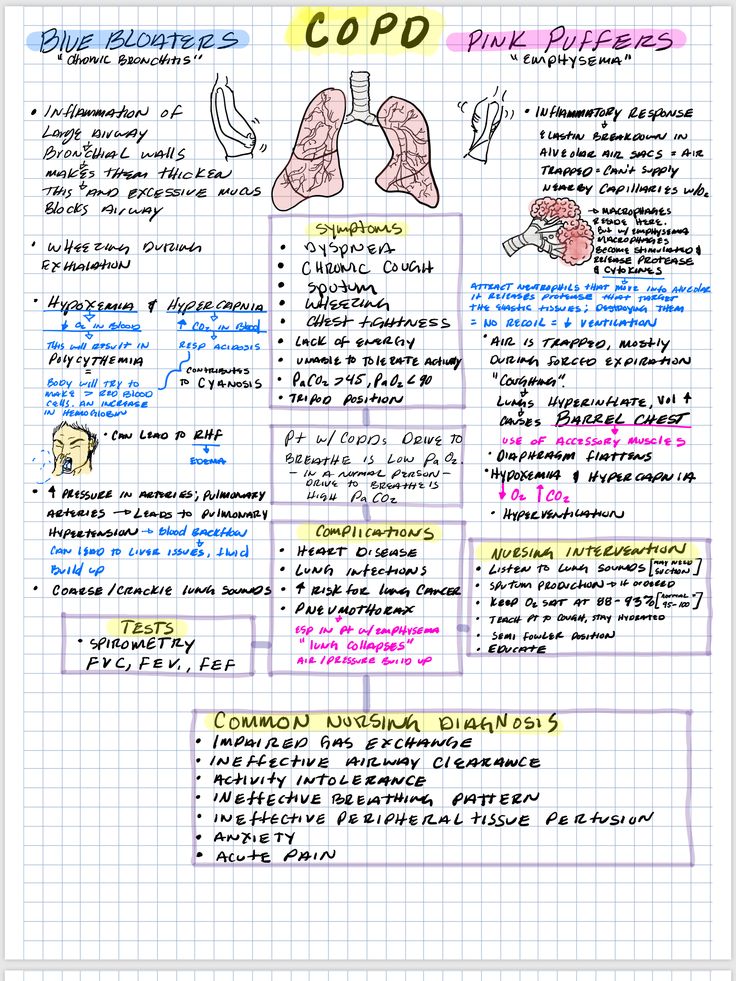 COPD
BLUE BLOATERS
"CHRONIC BRONCHITIS"
• INFLAMMATION OF
LARGE AIRWAY
BRONCHIAL WALLS
MAKES THEM THICKEN
THIS AND EXCESSIVE MUCUS
BLOCKS AIRWAY
• WHEEZING DURING
EXHALATION
• HYPOXEMIA & HYPERCAPNIA
↓ O2 IN BLOOD ↑ CO2 IN BLOOD
THIS WILL RESULT IN
POLYCYTHEMIA
=
BODY WILL TRY TO
MAKE > RED BLOOD
CELLS. AN INCREASE
IN HEMOGLOBIN
RESP ACIDOSIS
CONTRIBUTES
TO CYANOSIS
• CAN LEAD TO RHF
EDEMA
• ↑ PRESSURE IN ARTERIES; PULMONARY
ARTERIES → LEADS TO PULMONARY
HYPERTENSION → BLOOD BACKFLOW
CAN LEAD TO LIVER ISSUES, FLUID
BUILD UP
• COARSE/CRACKLE LUNG SOUNDS
TESTS
• SPIROMETRY
FVC, FEV1, FEF
SYMPTOMS
• DYSPNEA
• CHRONIC COUGH
• SPUTUM
• WHEEZING
• CHEST TIGHTNESS
• LACK OF ENERGY
• UNABLE TO TOLERATE ACTIVITY
• PaCO2 >45, PaO2 <90
• TRIPOD POSITION
PT W/ COPDS DRIVE TO
BREATHE IS LOW PaO2.
— IN A NORMAL PERSON —
DRIVE TO BREATHE IS
HIGH PaCO2
COMPLICATIONS
• HEART DISEASE
• LUNG INFECTIONS
• ↑ RISK FOR LUNG CANCER
• PNEUMOTHORAX
→ ESP IN PT W/ EMPHYSEMA
"LUNG COLLAPSES"
AIR/PRESSURE BUILD UP
PINK PUFFERS
"EMPHYSEMA"
• INFLAMMATORY RESPONSE
ELASTIN BREAKDOWN IN
ALVEOLAR AIR SACS = AIR
TRAPPED = CAN'T SUPPLY
NEARBY CAPILLARIES W/O2
→ MACROPHAGES
RESIDE HERE.
BUT W/ EMPHYSEMA
MACROPHAGES
BECOME STIMULATED &
RELEASE PROTEASE
& CYTOKINES
ATTRACT NEUTROPHILS THAT MOVE INTO ALVEOLAR
IT RELEASES PROTEASE THAT TARGET
THE ELASTIC TISSUES; DESTROYING THEM
= NO RECOIL = ↓ VENTILATION
• AIR IS TRAPPED, MOSTLY
DURING FORCED EXPIRATION
"COUGHING".
LUNGS HYPERINFLATE, VOL ↑
CAUSES BARREL CHEST
USE OF ACCESSORY MUSCLES
• DIAPHRAGM FLATTENS
• HYPOXEMIA & HYPERCAPNIA
↓ O2 ↑ CO2
• HYPERVENTILATION
NURSING INTERVENTION
• LISTEN TO LUNG SOUNDS [MAY NEED SUCTION]
• SPUTUM PRODUCTION → IF ORDERED
• KEEP O2 SAT AT 88-93% [NORMAL = 95-100]
• TEACH PT TO COUGH, STAY HYDRATED
• SEMI FOWLER POSITION
• EDUCATE
COMMON NURSING DIAGNOSIS
• IMPAIRED GAS EXCHANGE
• INEFFECTIVE AIRWAY CLEARANCE
• ACTIVITY INTOLERANCE
• INEFFECTIVE BREATHING PATTERN
• INEFFECTIVE PERIPHERAL TISSUE PERFUSION
• ANXIETY
• ACUTE PAIN